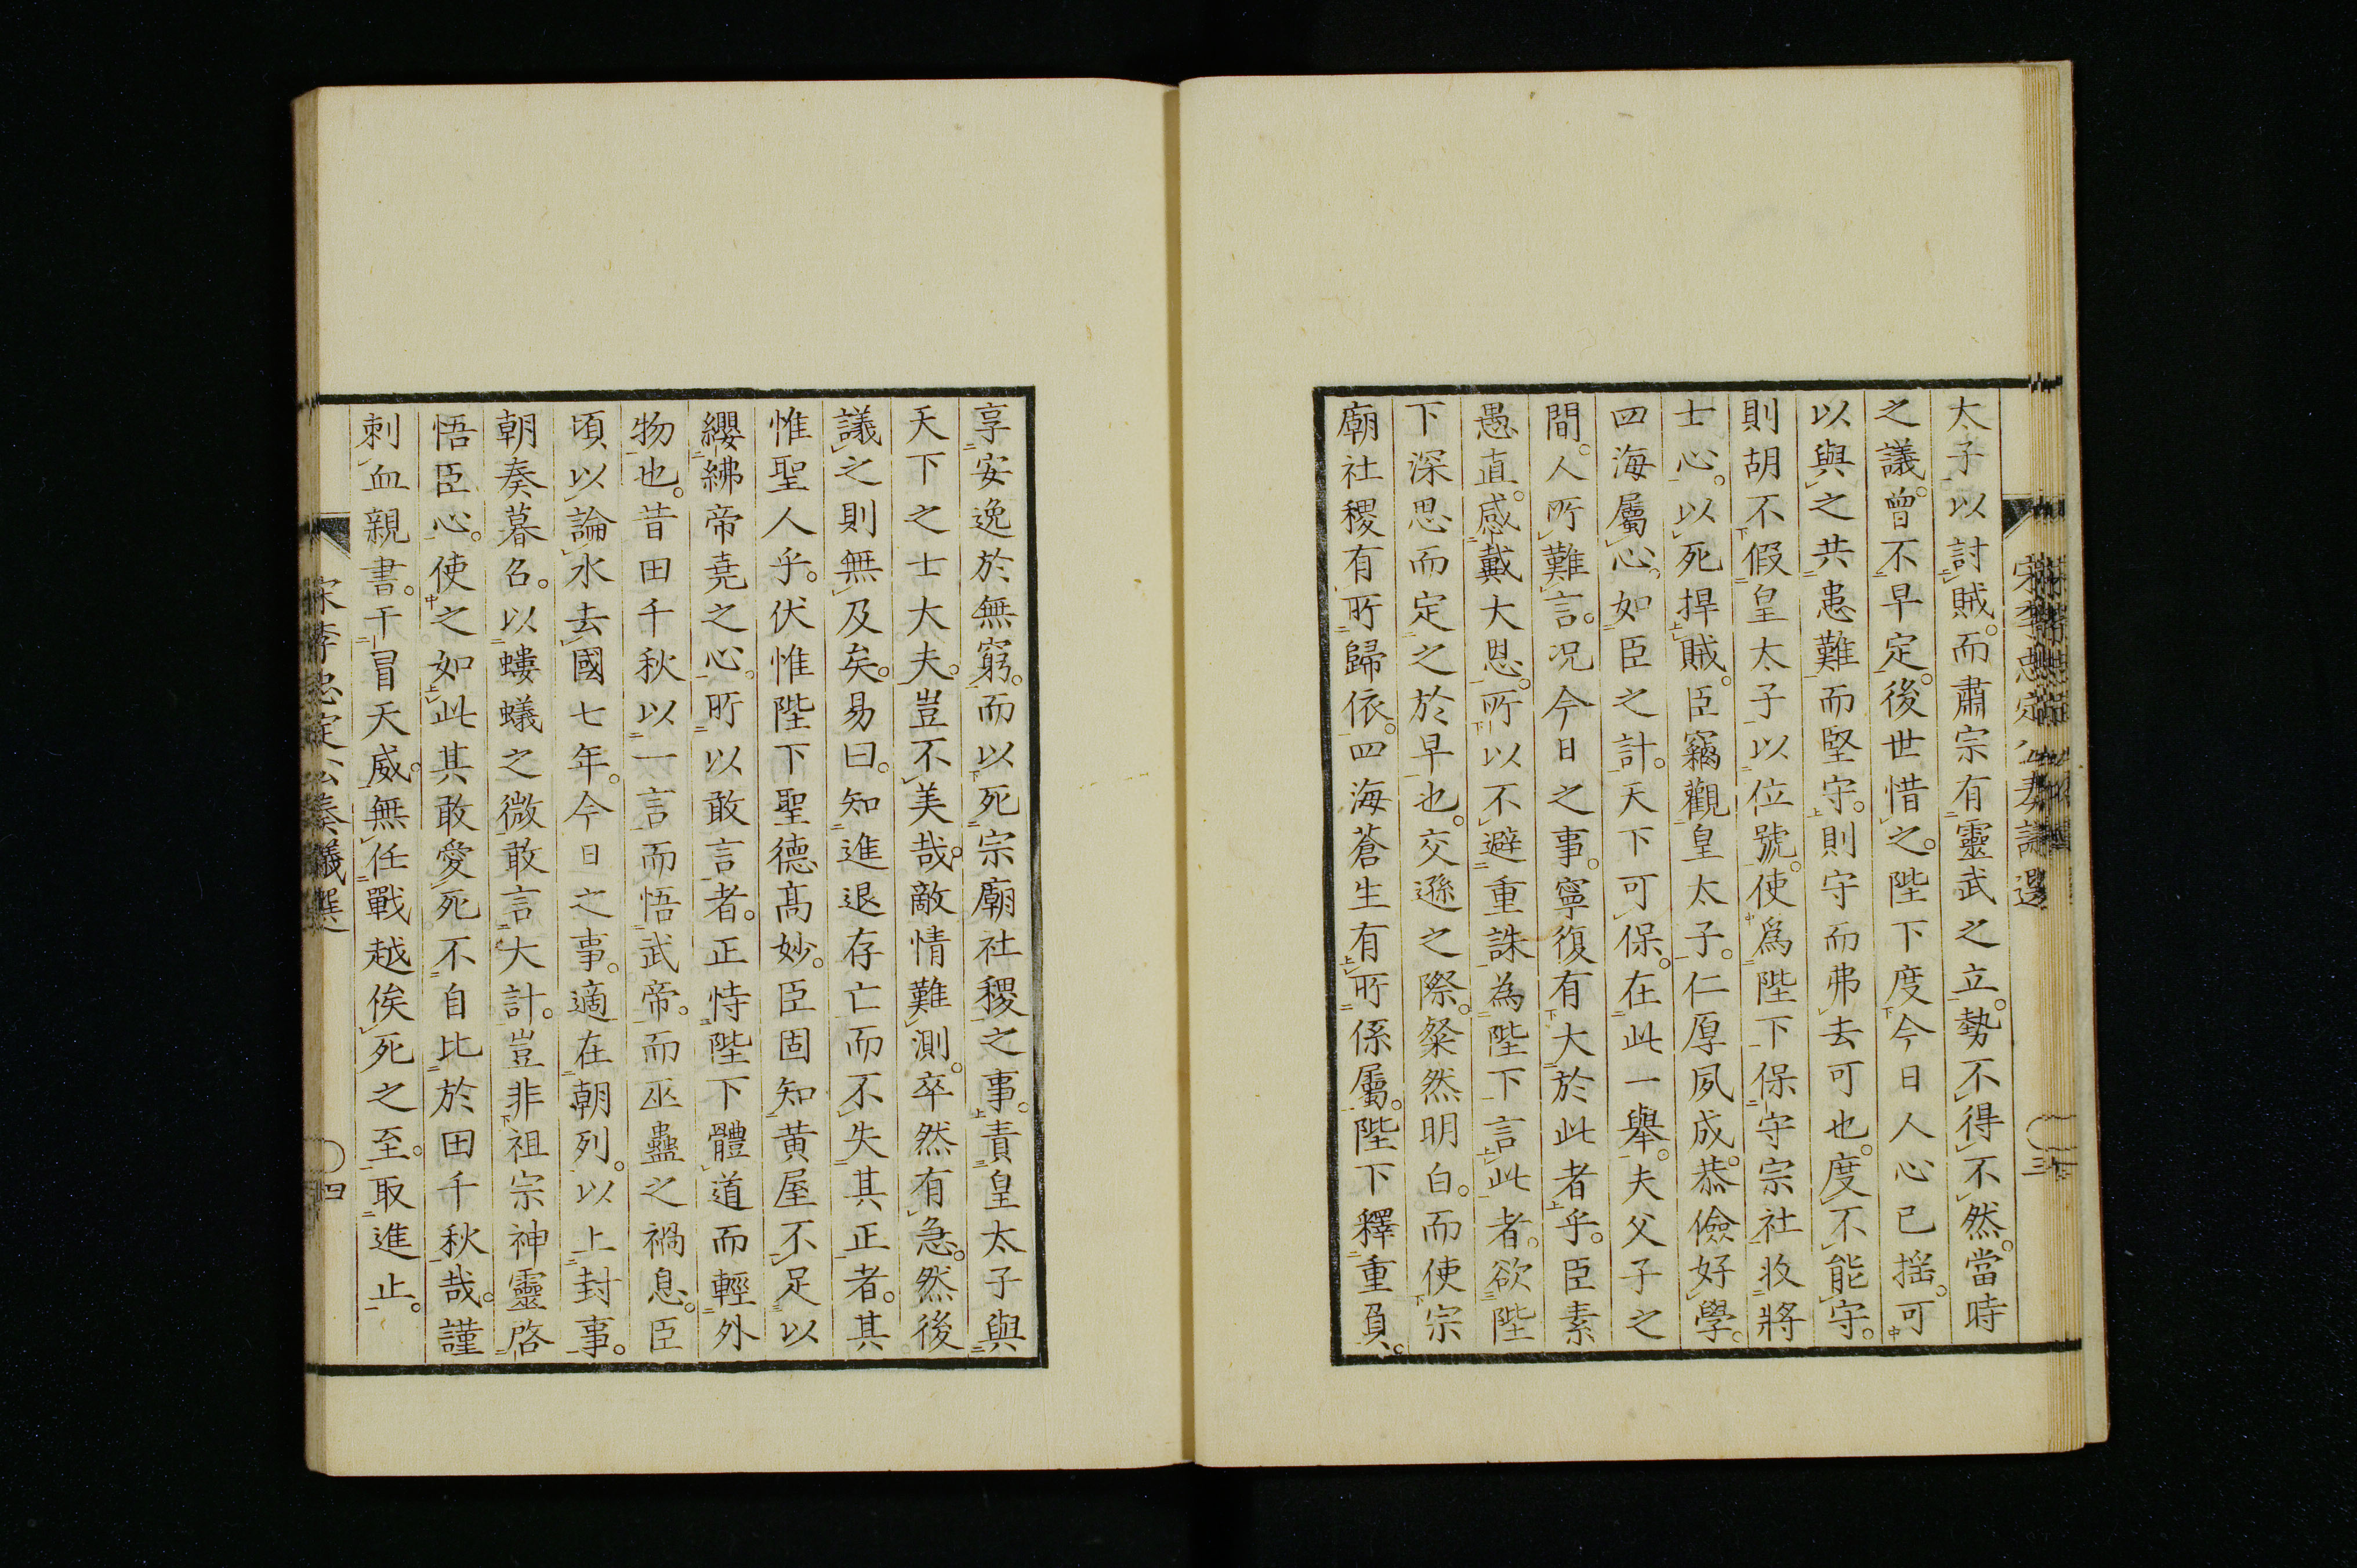 太子以討賊。而肅宗有靈武之立。勢不得不然。當時
之議。曾不早定。後世惜之。陛下度今日人心已揺。可
以與之共患難而堅守。則守而弗去可也。度不能守。
則胡不假皇太子以位號。使爲陛下保守宗社收將
士心。以死捍賊。臣竊觀皇太子。仁厚夙成。恭儉好學。
四海屬心。如臣之計。天下可保。在此一舉。夫父子之
間。人所難言。况今日之事。寧復有大於此者乎。臣素
愚直。感戴大恩。所以不避重誅為陛下言此者。欲陛
下深思而定之於早也。交遜之際。粲然明白。而使宗
廟社稷有所歸依。四海蒼生有所係屬。陛下釋重負。
享安逸於無窮。而以死宗廟社稷之事。責皇太子與
天下之士大夫。豈不美哉。敵情難測。卒然有急。然後
議之則無及矣。易曰。知進退存亡而不失其正者。其
惟聖人乎。伏惟陛下聖德高妙。臣固知黄屋不足以
纓紼帝堯之心。所以敢言者。正恃陛下體道而輕外
物也。昔田千秋以一言而悟武帝。而巫蠱之禍息。臣
頃以論水去國七年。今日之事。適在朝列。以上封事。
朝奏暮召。以螻蟻之微敢言大計。豈非祖宗神靈啓
悟臣心。使之如此其敢愛死不自比於田千秋哉。謹
刺血親書。干冒天威。無任戰越俟死之至。取進止。
宋李忠定公奏議選
四